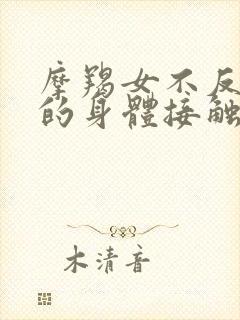 摩羯女不反
的身體接触
木清音